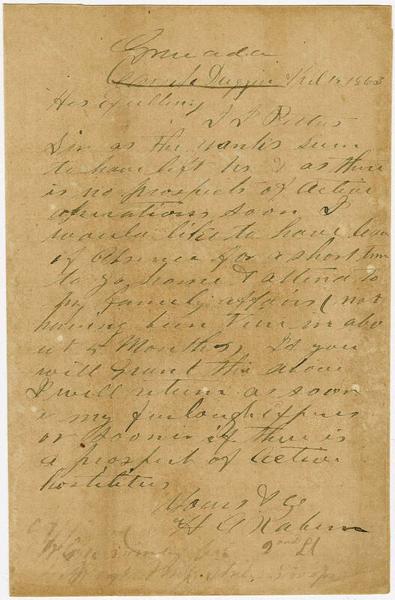 Grenada
Camp Duggin Feb 12 1863
His Exellency
J J Pettus
Sir as the Yankis seem
to have left us & as there
is no prospects of active
opperations soon I
would like to have leav
of absence for a short time
to go home & attend to
my family affairs (not
having been there in abo
ut 5 Months) If you
will grant the above
I will return as soon
as my furlough expires
or sooner if there is
a prospect of active
hostilities
Yours &c
2nd Lt